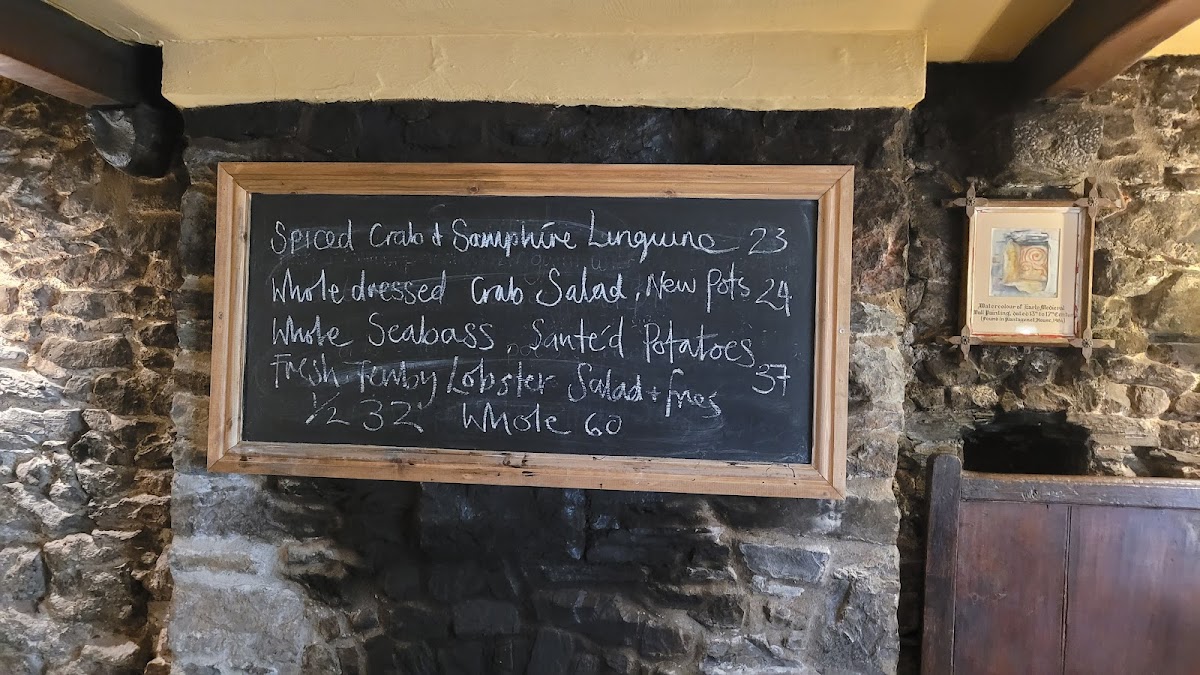 Spiced Crab & Samphire Linguine 23
Whole dressed Crab Salad, New Pots 24
Whole Seabass, Sante'd Potatoes 37
Fresh Tenby Lobster Salad + fries
1/2 32 Whole 60
Watercolour of Early Medieval
Wall Painting, dated 13th to 17th Century
(Found in Plantagenet House, 1986)